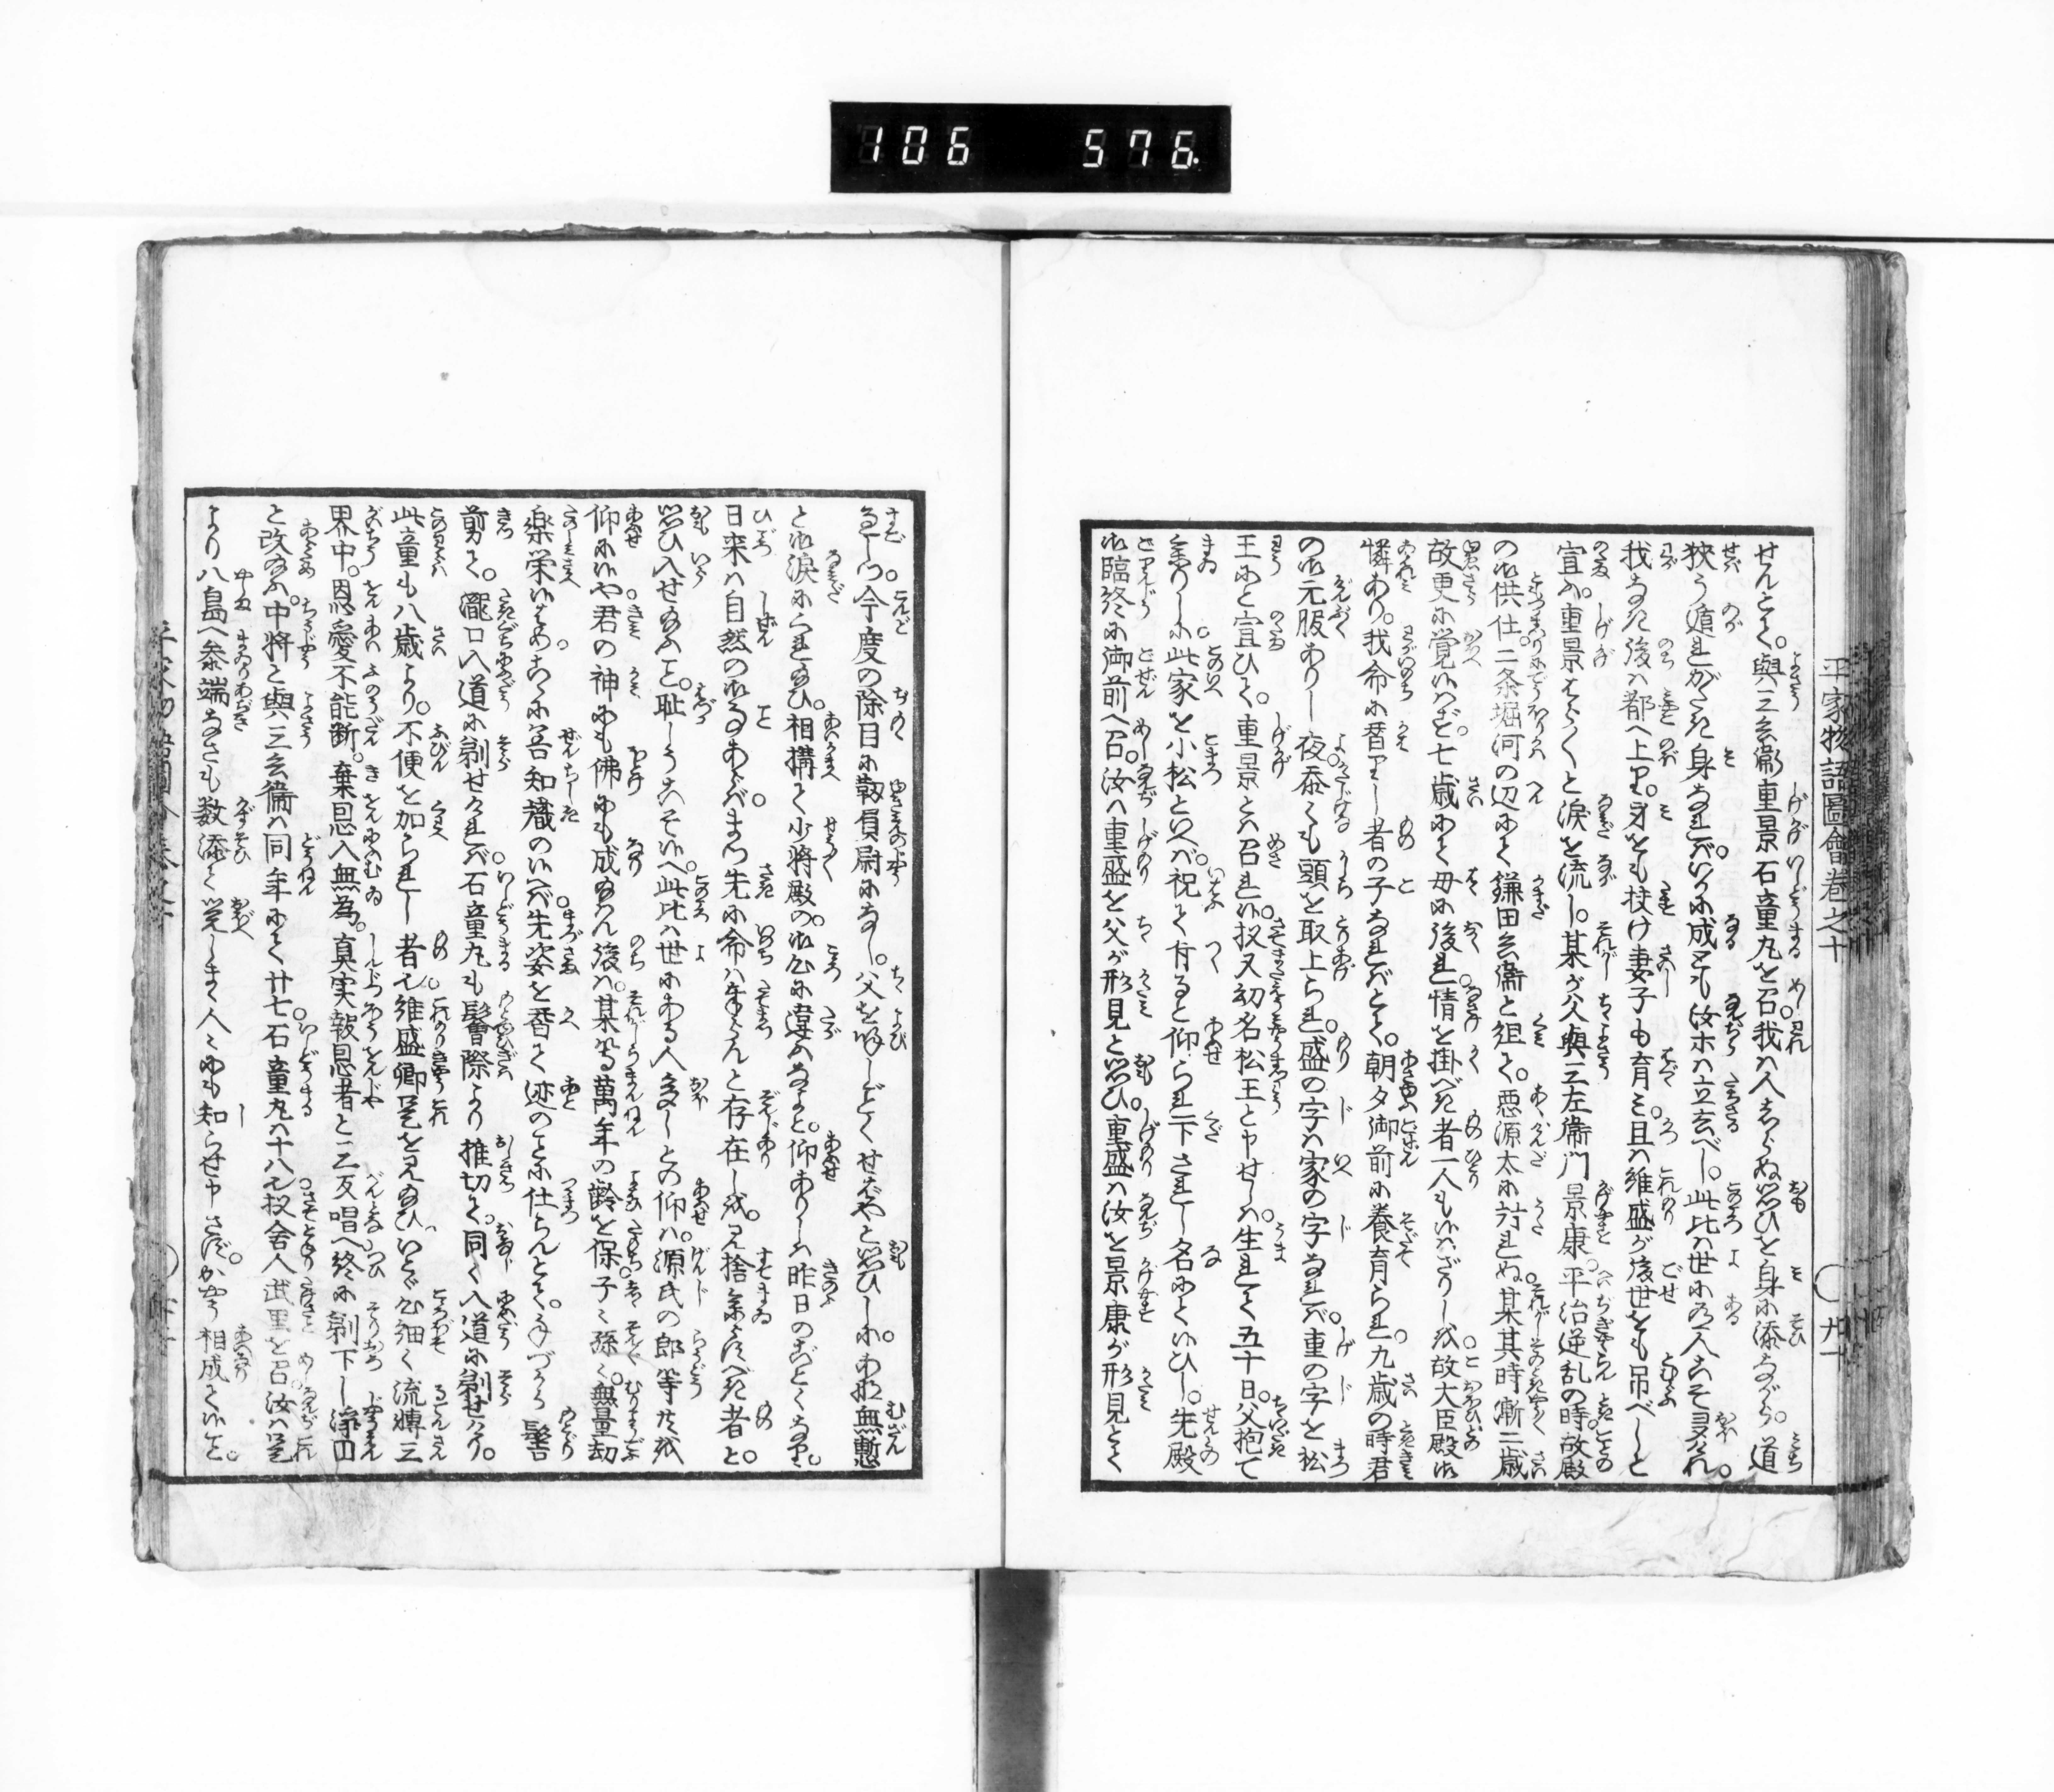 106 576
平家物語圖會巻之十
せんとて。與三兵衛重景石童丸を召。我ハ人しらぬ思ひを身に添ながら。道
狭う遁れがたき身なれバ。いかに成とも汝ホハ立去べし。此比ハ世にある人こそ多けれ。
我なき後ハ都へ上り。身をも扶け妻子も育ミ。且ハ維盛が後世をも吊べしと
宣ふ。重景はら〳〵と涙を流し。某が父與三左衛門景康。平治逆乱の時。故殿
の御供仕。二条堀河の辺にて鎌田兵衛と組て。悪源太に討れぬ。某其時漸二歳
故更に覚いはず。七歳にて母に後れ。情を掛べき者一人もいはざりしに。故大臣殿御
憐あり。我命に替りし者の子なれバとて。朝夕御前に養育られ。九歳の時君
の御元服ありし夜。忝くも頭を取上られ。盛の字ハ家の字なれバ。重の字を松
王にと宣ひて。重景とハ召れい。扨又幼名松王と申せしハ。生れて五十日。父抱て
参りしに。此家を小松といへバ。祝て付ると仰られ。下されし名にといひし。先殿
御臨終に御前へ召。汝ハ重盛を父が形見と思ひ。重盛ハ汝を景康が形見とて
なしつ。今度の除目に靱負尉になし。父を呼しごとくせばやと思ひしに。あな無慙
と御涙にくれ給ひ。相構て少将殿の。御心に違ふなよと。仰ありしハ昨日のごとくなり。
日来ハ自然の御事あらバ。まつ先に命ハ奉らんと存在しに。見捨参らすべき者と。
思ひ入せ給ふ事。耻しうこそいへ。此比ハ世にある人多しとの仰ハ。源氏の郎等共に
仰にいや。君の神にも佛にも成給はん後ハ。某等萬年の齢を保。子々孫々。無量劫
楽栄いはめ。こゝに善知識のいへバ。先姿を替て。迹の事に仕らんとて。手づから髻
剪て。瀧口入道に剃せければ。石童丸も髻際より推切て。同く入道に剃せけり。
此童も八歳より。不便を加られし者也。維盛卿是を見給ひ。いとゞ心細く流轉三
界中。恩愛不能断。棄恩入無為。真実報恩者と三反唱へ。終に剃下し浄円
と改給ふ。中将と與三兵衛ハ同年にて廿七。石童丸ハ十八也。扨舎人武里を召。汝ハ是
より八島へ参